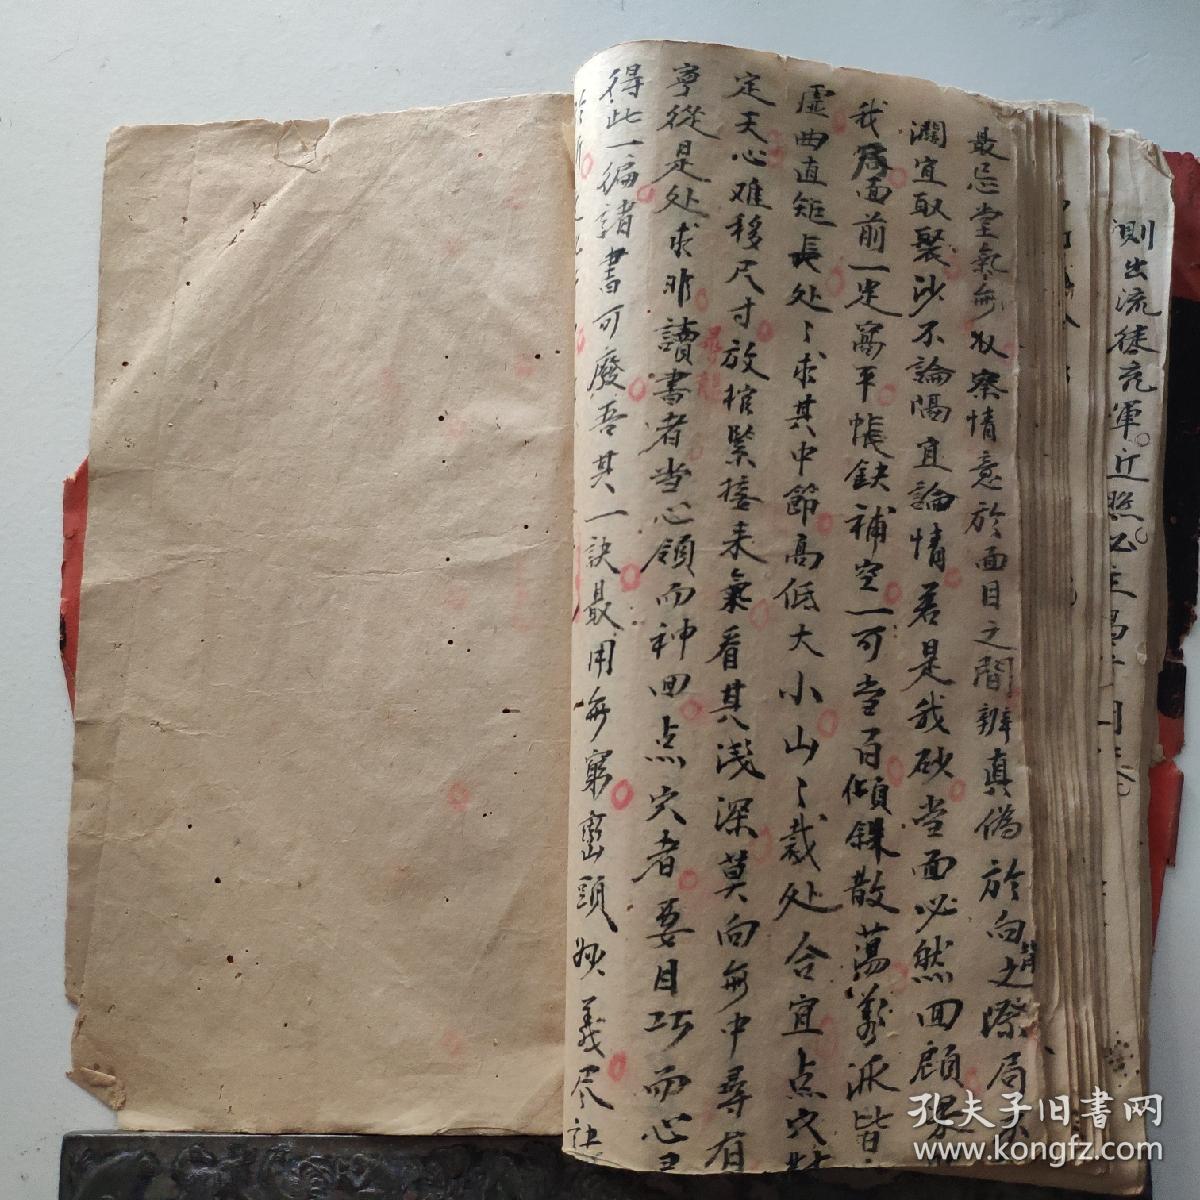 最忌堂氣無收察情意於面目之間辨真偽於向背之際局
濶宜取聚沙不論隔宜論情若是我砂堂面必然回顧
我居面前一定寫平帳缺補空一可堂百傾銖散蕩義派皆
虛曲直矩長处〻求其中節高低大小山〻裁处合宜点穴
定天心难移尺寸放棺緊接来氣看其浅深莫向無中尋有
寧從是处求非讀書者当心領而神回点穴者要目巧而心
尋龍
得此一徧諸書可廢吾其一訣最用無窮巒頭妙義尽
則出流徒充軍近照必主
孔夫子旧書网
www.kongfz.com